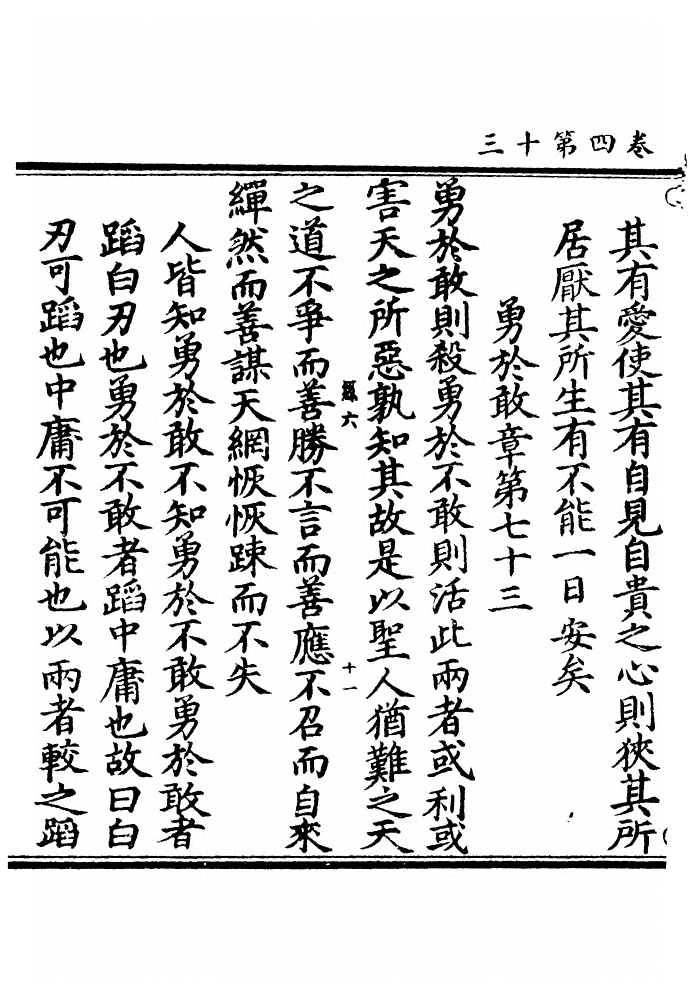 三十第四卷
其有愛使其有自見自貴之心則狹其所
居厭其所生有不能一日安矣
勇於敢章第七十三
勇於敢則殺勇於不敢則活此兩者或利或
害天之所惡孰知其故是以聖人猶難之天
六 十一
之道不爭而善勝不言而善應不召而自來
繟然而善謀天網恢恢踈而不失
人皆知勇於敢不知勇於不敢勇於敢者
蹈白刃也勇於不敢者蹈中庸也故曰白
刃可蹈也中庸不可能也以兩者較之蹈